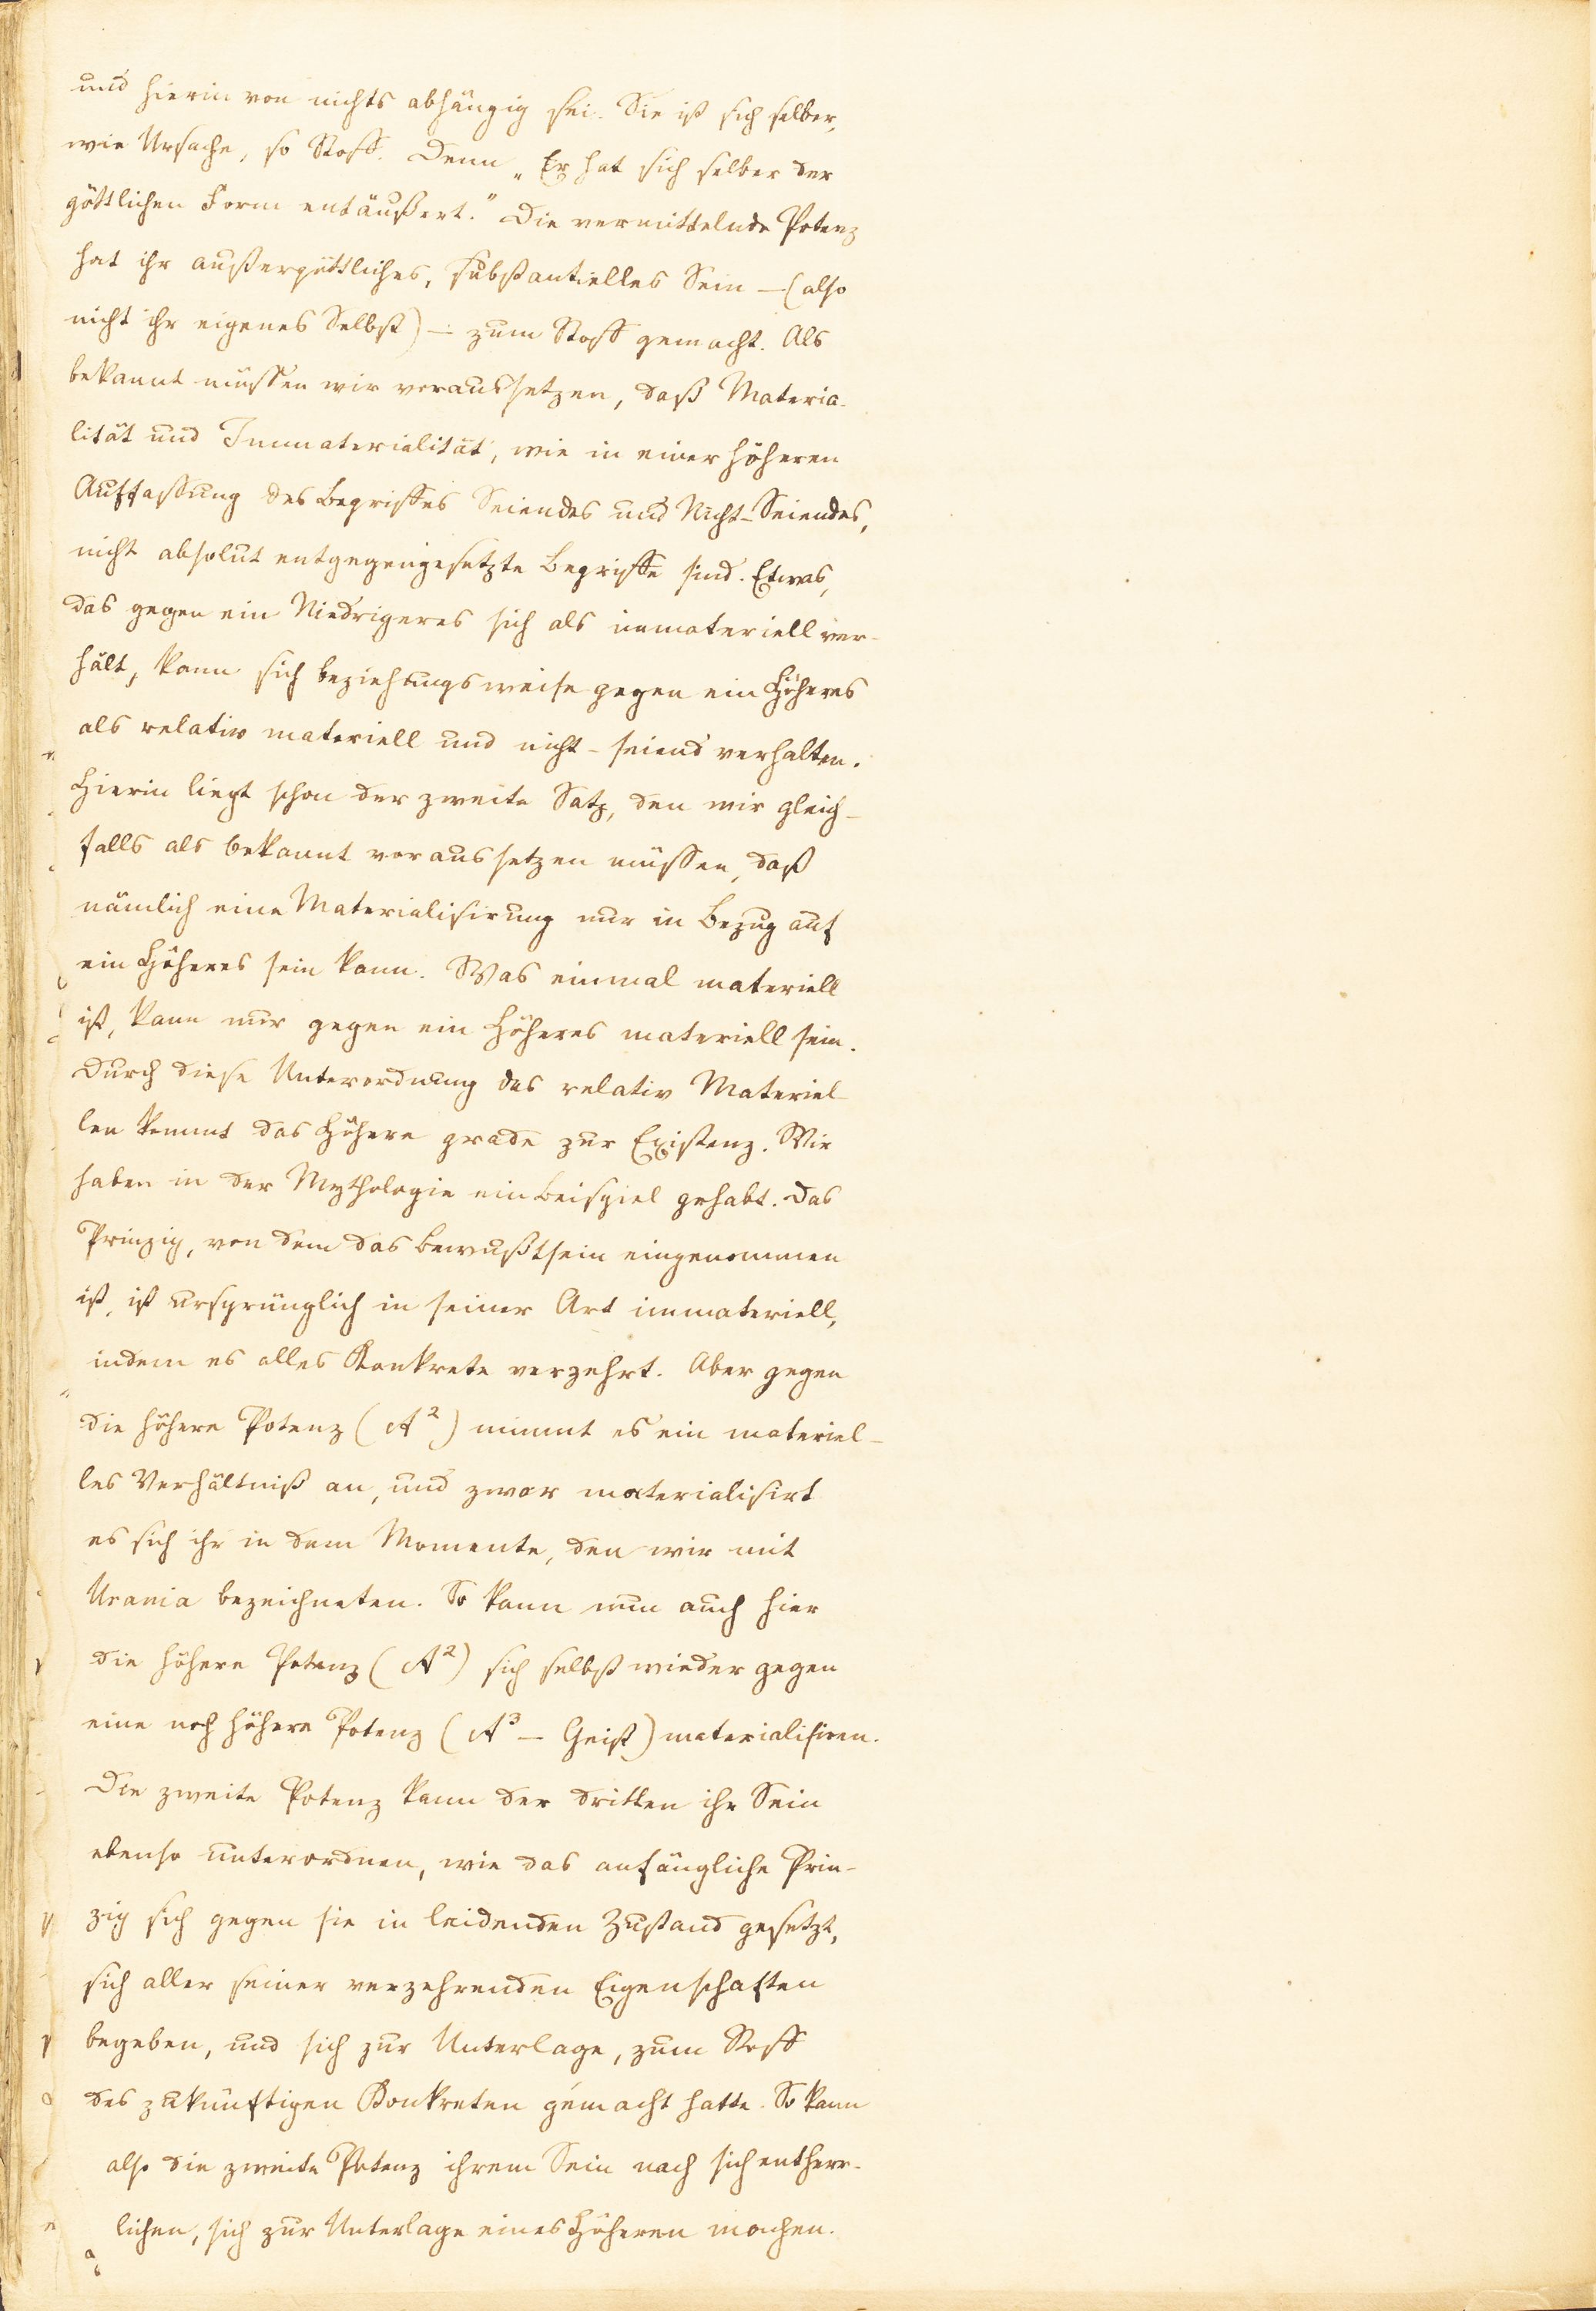 und hierin von nichts abhängig sei. Sie ist sich selber,
wie Ursache, so Stoff. Denn „Er hat sich selber der
göttlichen Form entäußert.“ Die vermittelnde Potenz
hat ihr außergöttliches, substantielles Sein — (also
nicht ihr eigenes Selbst) — zum Stoff gemacht. Als
bekannt müssen wir voraussetzen, daß Materia-
lität und Immaterialität, wie in einer höheren
Auffassung des Begriffes Seiendes und Nicht-Seiendes,
nicht absolut entgegengesetzte Begriffe sind. Etwas,
das gegen ein Niedrigeres sich als immateriell ver-
hält, kann sich beziehungsweise gegen ein Höheres
als relativ materiell und nicht-seiend verhalten.
Hierin liegt schon der zweite Satz, den wir gleich-
falls als bekannt voraussetzen müssen, daß
nämlich eine Materialisirung nur in Bezug auf
ein Höheres sein kann. Was einmal materiell
ist, kann nur gegen ein Höheres materiell sein.
Durch diese Unterordnung des relativ Materiel-
len kommt das Höhere grade zur Existenz. Wir
haben in der Mythologie ein Beispiel gehabt. Das
Prinzip, von dem das Bewußtsein eingenommen
ist, ist ursprünglich in seiner Art immateriell,
indem es alles Konkrete verzehrt. Aber gegen
die höhere Potenz (A²) nimmt es ein materiel-
les Verhältniß an, und zwar materialisirt
es sich ihr in dem Momente, den wir mit
Urania bezeichneten. So kann nun auch hier
die höhere Potenz (A²) sich selbst wieder gegen
eine noch höhere Potenz (A³ — Geist) materialisiren.
Die zweite Potenz kann der dritten ihr Sein
ebenso unterordnen, wie das anfängliche Prin-
zip sich gegen sie in leidenden Zustand gesetzt,
sich aller seiner verzehrenden Eigenschaften
begeben, und sich zur Unterlage, zum Stoff
des zukünftigen Konkreten gemacht hatte. So kann
also die zweite Potenz ihrem Sein nach sich entherr-
lichen, sich zur Unterlage eines Höheren machen.